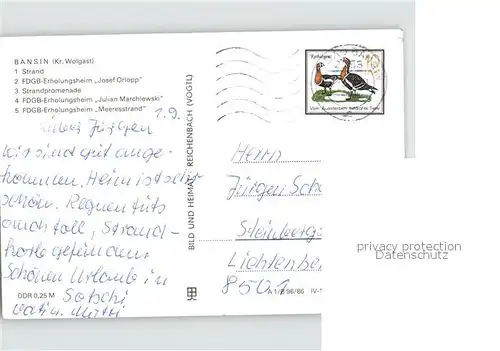 BANSIN (Kr. Wolgast)
1 Strand
2 FDGB-Erholungsheim „Josef Orlopp"
3 Strandpromenade
4 FDGB-Erholungsheim „Julian Marchlewski"
5 FDGB-Erholungsheim „Meeresstrand"
1.9.
Lieber Jürgen
wir sind gut ange-
kommen. Heim ist sehr
schön. Regnen tuts
auch toll, Strand-
korb gefunden.
Schönen Urlaub in
Sotschi
Vati u. Mutti
DDR 0,25 M
BILD UND HEIMAT REICHENBACH (VOGTL)
Rothalsgans
Vom Aussterben bedrohte Tiere
Herrn
Jürgen
Lichtenberg
8501
A 1/B 96/86 IV-1
privacy protection
Datenschutz